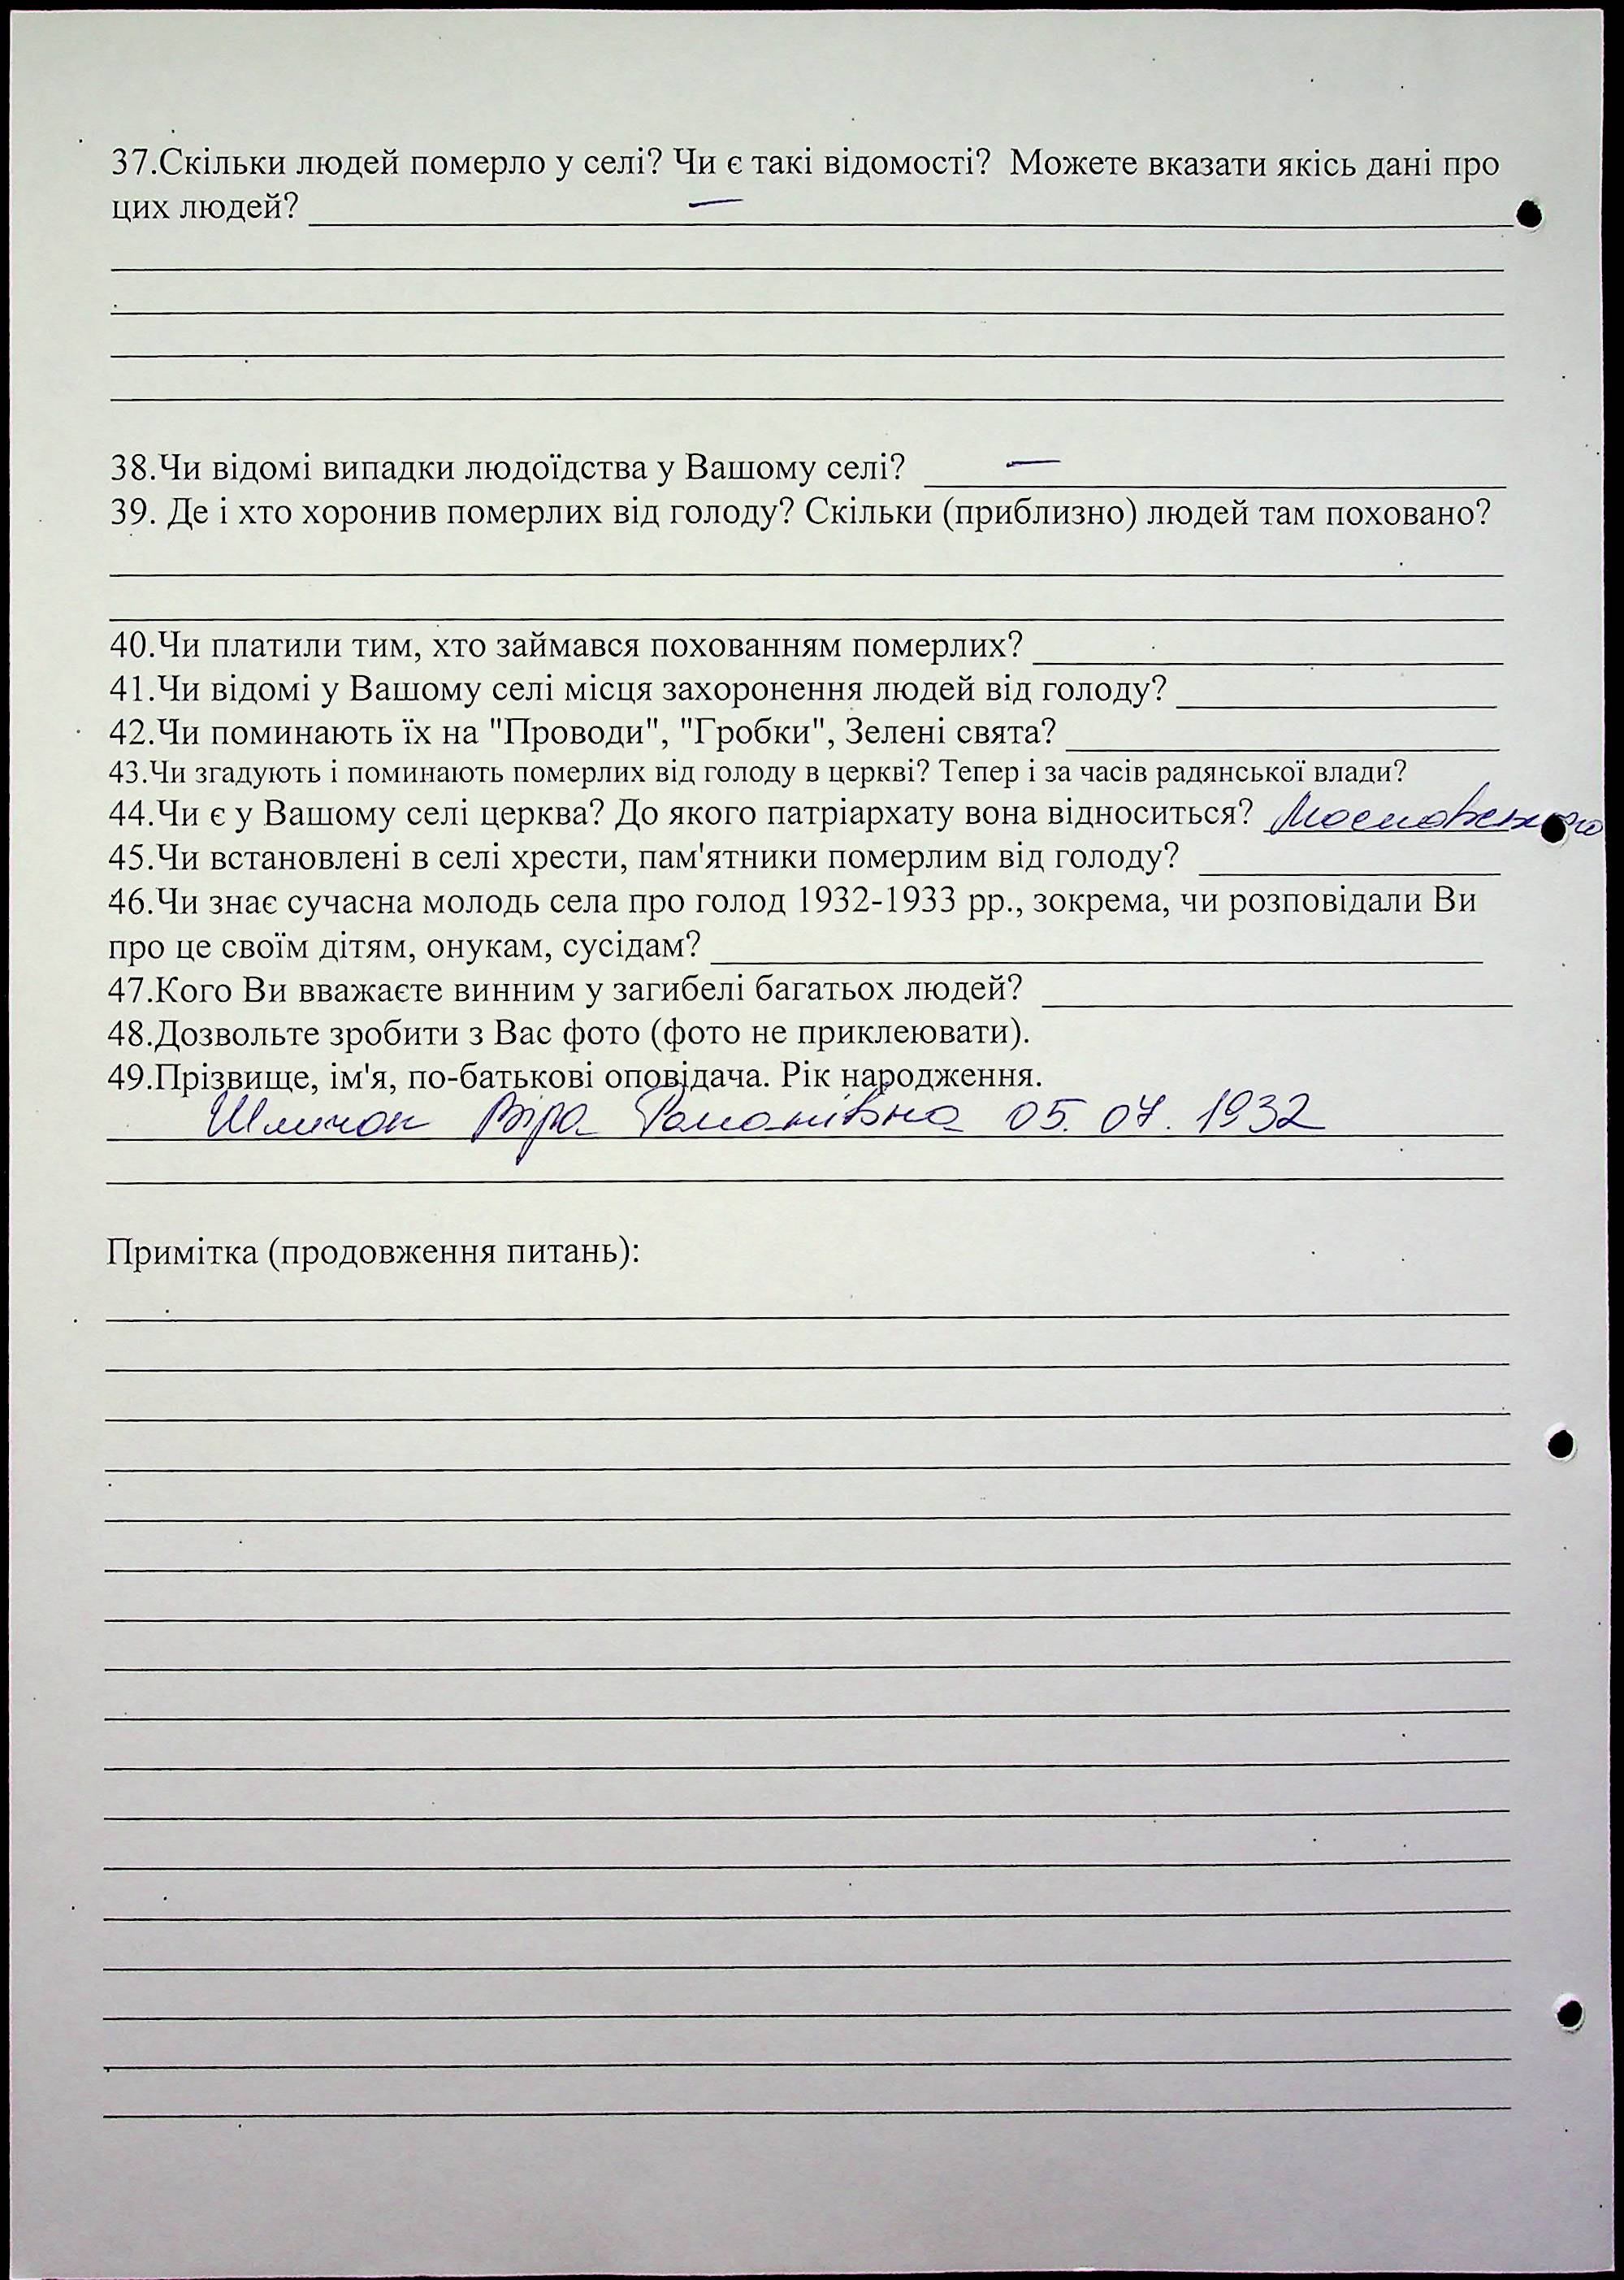 37.Скільки людей померло у селі? Чи є такі відомості? Можете вказати якісь дані про
цих людей? —
38.Чи відомі випадки людоїдства у Вашому селі? —
39. Де і хто хоронив померлих від голоду? Скільки (приблизно) людей там поховано?
40.Чи платили тим, хто займався похованням померлих?
41.Чи відомі у Вашому селі місця захоронення людей від голоду?
42.Чи поминають їх на "Проводи", "Гробки", Зелені свята?
43.Чи згадують і поминають померлих від голоду в церкві? Тепер і за часів радянської влади?
44.Чи є у Вашому селі церква? До якого патріархату вона відноситься? Московського
45.Чи встановлені в селі хрести, пам'ятники померлим від голоду?
46.Чи знає сучасна молодь села про голод 1932-1933 рр., зокрема, чи розповідали Ви
про це своїм дітям, онукам, сусідам?
47.Кого Ви вважаєте винним у загибелі багатьох людей?
48.Дозвольте зробити з Вас фото (фото не приклеювати).
49.Прізвище, ім'я, по-батькові оповідача. Рік народження.
Віра Романівна 05. 07. 1932
Примітка (продовження питань):